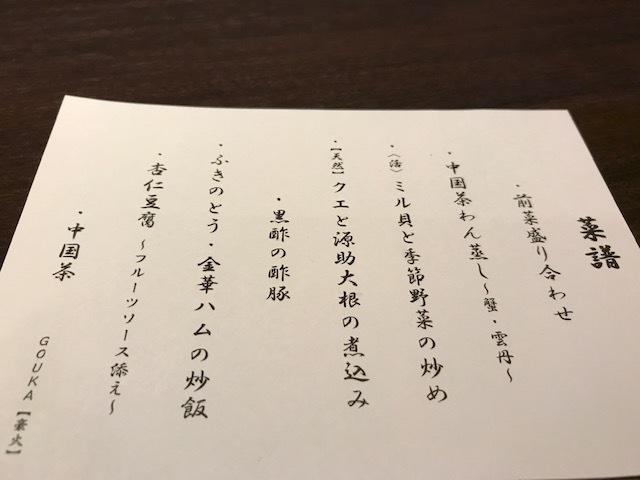 菜譜
・前菜盛り合わせ
・中国茶わん蒸し～蟹・雲丹～
・〈活〉ミル貝と季節野菜の炒め
・【天然】クエと源助大根の煮込み
・黒酢の酢豚
・ふきのとう・金華ハムの炒飯
・杏仁豆腐 ～フルーツソース添え～
・中国茶
GOUKA【豪火】